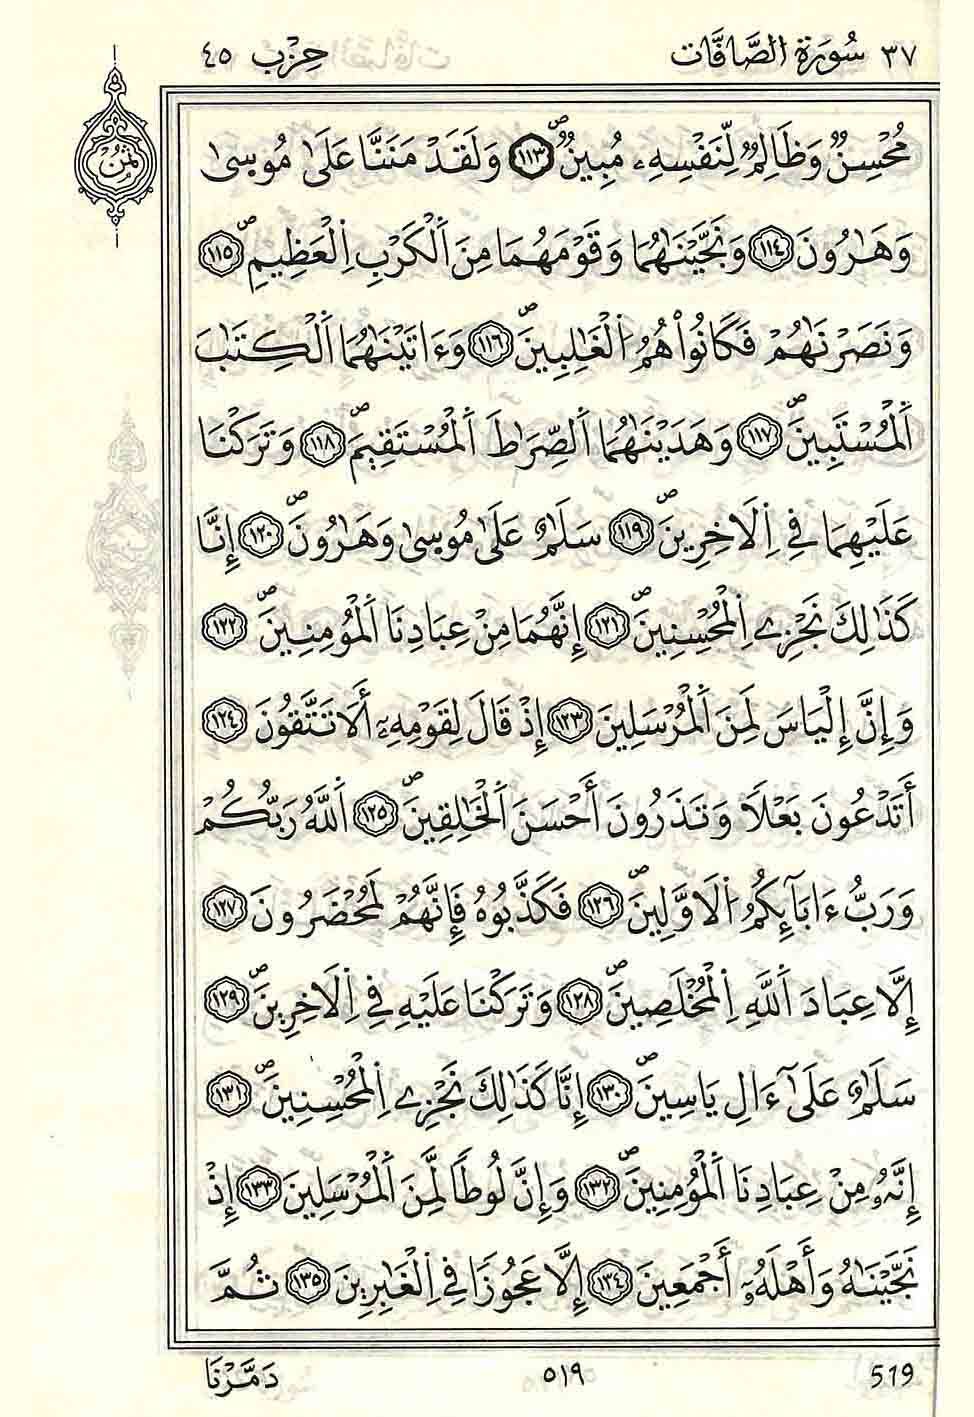 ٣٧ سُورَةُ الصَّافَّات حِزْب ٤٥
ثُمُن
مُحْسِنٌ وَظَالِمٌ لِّنَفْسِهِۦ مُبِينٌ ۝١١٣ وَلَقَدْ مَنَنَّا عَلَىٰ مُوسىٰ
وَهَٰرُونَ ۝١١٤ وَنَجَّيْنَٰهُمَا وَقَوْمَهُمَا مِنَ اَ۬لْكَرْبِ اِ۬لْعَظِيمِۖ ۝١١٥
وَنَصَرْنَٰهُمْ فَكَانُواْ هُمُ اُ۬لْغَٰلِبِينَۖ ۝١١٦ وَءَاتَيْنَٰهُمَا اَ۬لْكِتَٰبَ
اَ۬لْمُسْتَبِينَۖ ۝١١٧ وَهَدَيْنَٰهُمَا اَ۬لصِّرَٰطَ اَ۬لْمُسْتَقِيمَۖ ۝١١٨ وَتَرَكْنَا
عَلَيْهِمَا فِي اِ۬لَاخِرِينَۖ ۝١١٩ سَلَٰمٌ عَلَىٰ مُوسىٰ وَهَٰرُونَۖ ۝١٢٠ إِنَّا
كَذَٰلِكَ نَجْزِي اِ۬لْمُحْسِنِينَۖ ۝١٢١ إِنَّهُمَا مِنْ عِبَادِنَا اَ۬لْمُومِنِينَۖ ۝١٢٢
وَإِنَّ إِلْيَاسَ لَمِنَ اَ۬لْمُرْسَلِينَ ۝١٢٣ إِذْ قَالَ لِقَوْمِهِۦٓ أَلَا تَتَّقُونَ ۝١٢٤
أَتَدْعُونَ بَعْلًا وَتَذَرُونَ أَحْسَنَ اَ۬لْخَٰلِقِينَۖ ۝١٢٥ اَ۬للَّهُ رَبُّكُمْ
وَرَبُّ ءَابَآئِكُمُ اُ۬لَاوَّلِينَۖ ۝١٢٦ فَكَذَّبُوهُ فَإِنَّهُمْ لَمُحْضَرُونَ ۝١٢٧
إِلَّا عِبَادَ اَ۬للَّهِ اِ۬لْمُخْلَصِينَۖ ۝١٢٨ وَتَرَكْنَا عَلَيْهِ فِي اِ۬لَاخِرِينَۖ ۝١٢٩
سَلَٰمٌ عَلَىٰٓ ءَالِ يَاسِينَۖ ۝١٣٠ إِنَّا كَذَٰلِكَ نَجْزِي اِ۬لْمُحْسِنِينَۖ ۝١٣١
إِنَّهُۥ مِنْ عِبَادِنَا اَ۬لْمُومِنِينَۖ ۝١٣٢ وَإِنَّ لُوطًا لَّمِنَ اَ۬لْمُرْسَلِينَ ۝١٣٣ إِذْ
نَجَّيْنَٰهُ وَأَهْلَهُۥٓ أَجْمَعِينَ ۝١٣٤ إِلَّا عَجُوزًا فِي اِ۬لْغَٰبِرِينَ ۝١٣٥ ثُمَّ
519 ٥١٩ دَمَّرْنَا